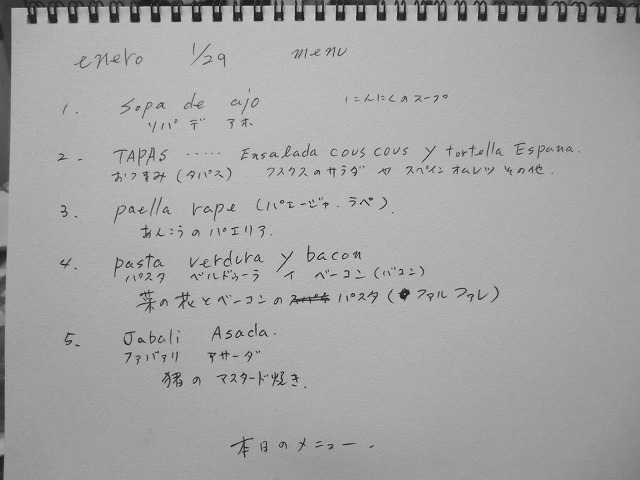 enero 1/29 menu
1. sopa de ajo にんにくのスープ
ソパ デ アホ
2. TAPAS ..... Ensalada couscous y tortella Espana.
おつまみ (タパス) クスクスのサラダ や スペインオムレツ その他.
3. paella rape (パエージャ. ラペ).
あんこうのパエリア.
4. pasta verdura y bacon
パスタ ベルドゥーラ イ ベーコン (バコン)
菜の花とベーコンの パスタ (ファルファレ)
5. Jabali Asada.
ファバァリ アサーダ
猪の マスタード焼き.
本日のメニュー.